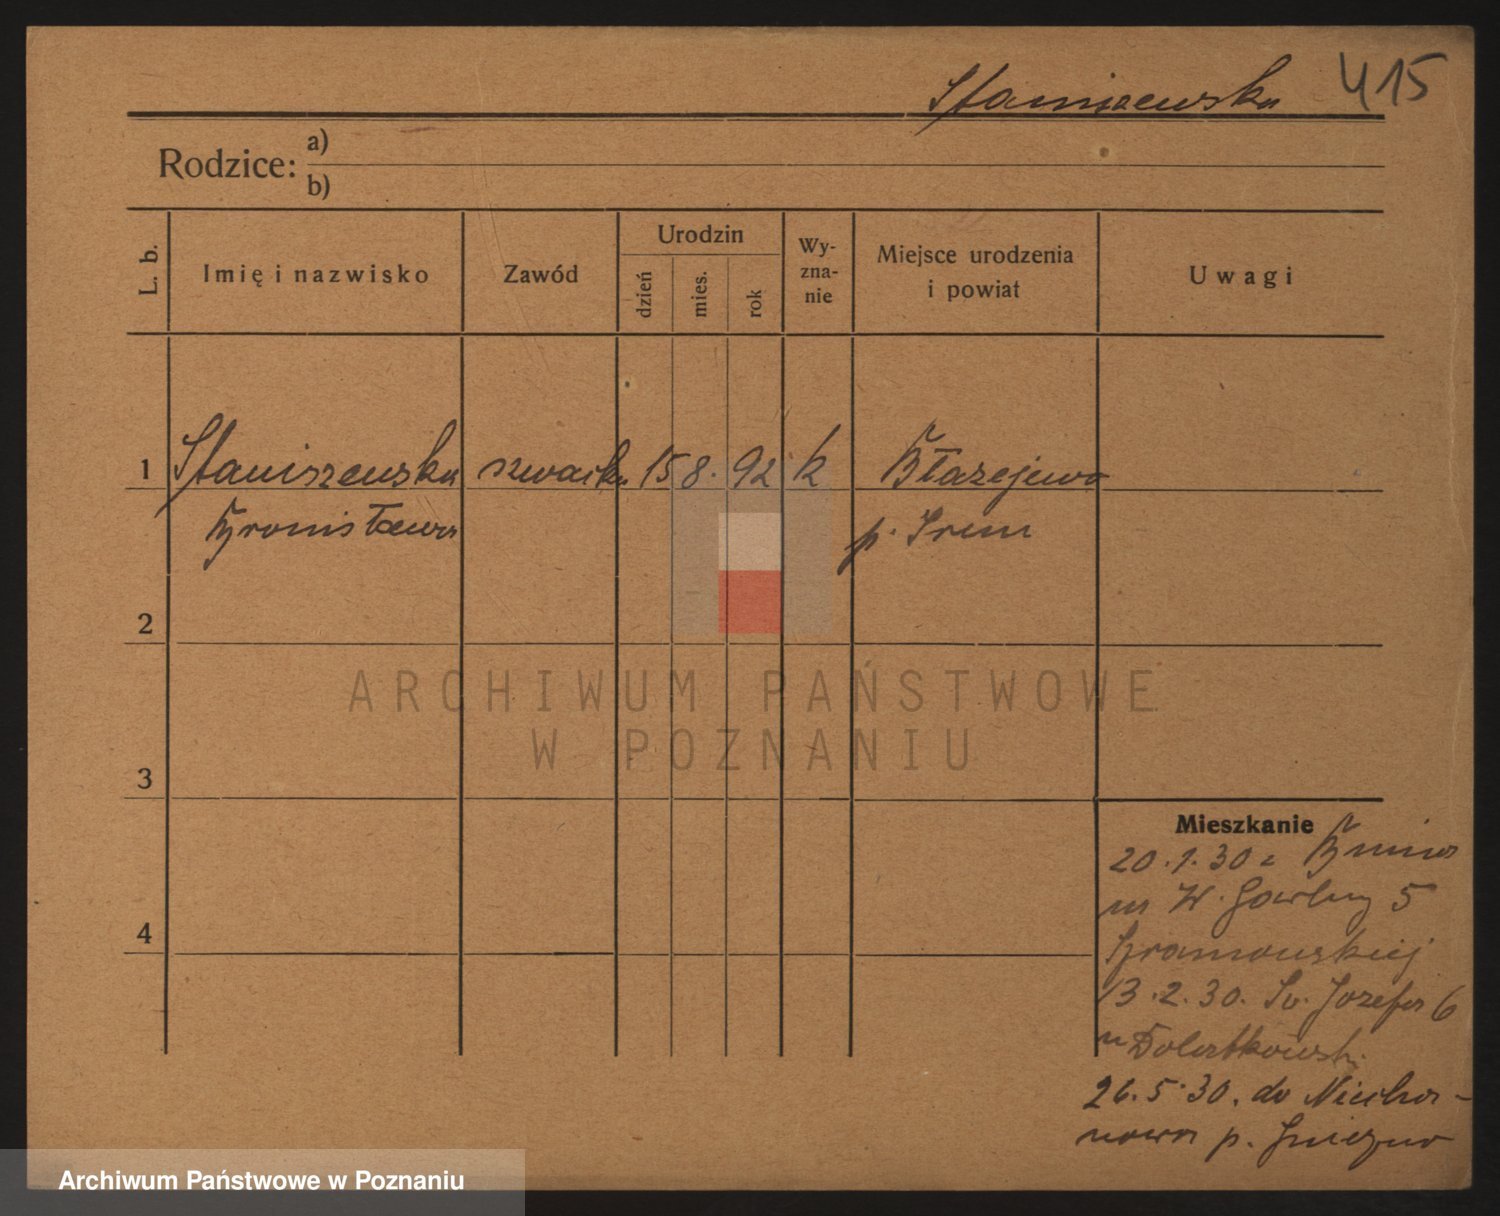 Staniszewska 415
Rodzice: a)
b)
L. b.
Imię i nazwisko
Zawód
Urodzin
dzień
mies.
rok
Wy-
zna-
nie
Miejsce urodzenia
i powiat
Uwagi
1 Staniszewska szwaczka 15 8. 92 k Błażejewo
Bronisława p. Śrem
2
3
4
ARCHIWUM PAŃSTWOWE
W POZNANIU
Mieszkanie
20.1.30 z Bnina
na W. Garbary 5
Bramowskiej
13.2.30. Św. Józefa 6
26.5.30. do Niecha-
nowa p. Gniezno
Archiwum Państwowe w Poznaniu